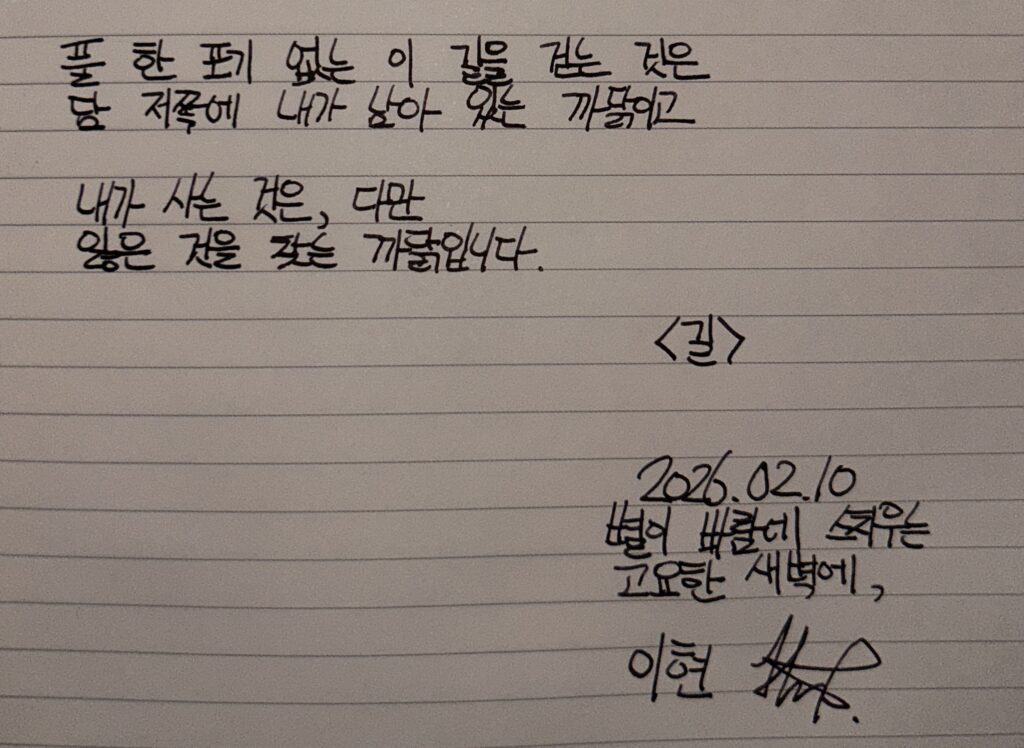 풀 한 포기 없는 이 길을 걷는 것은
담 저쪽에 내가 남아 있는 까닭이고
내가 사는 것은, 다만
잃은 것을 찾는 까닭입니다.
<길>
2026.02.10
별이 바람에 스치우는
고요한 새벽에,
이현